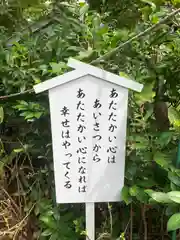 あたたかい心は
あいさつから
あたたかい心になれば
幸せはやってくる